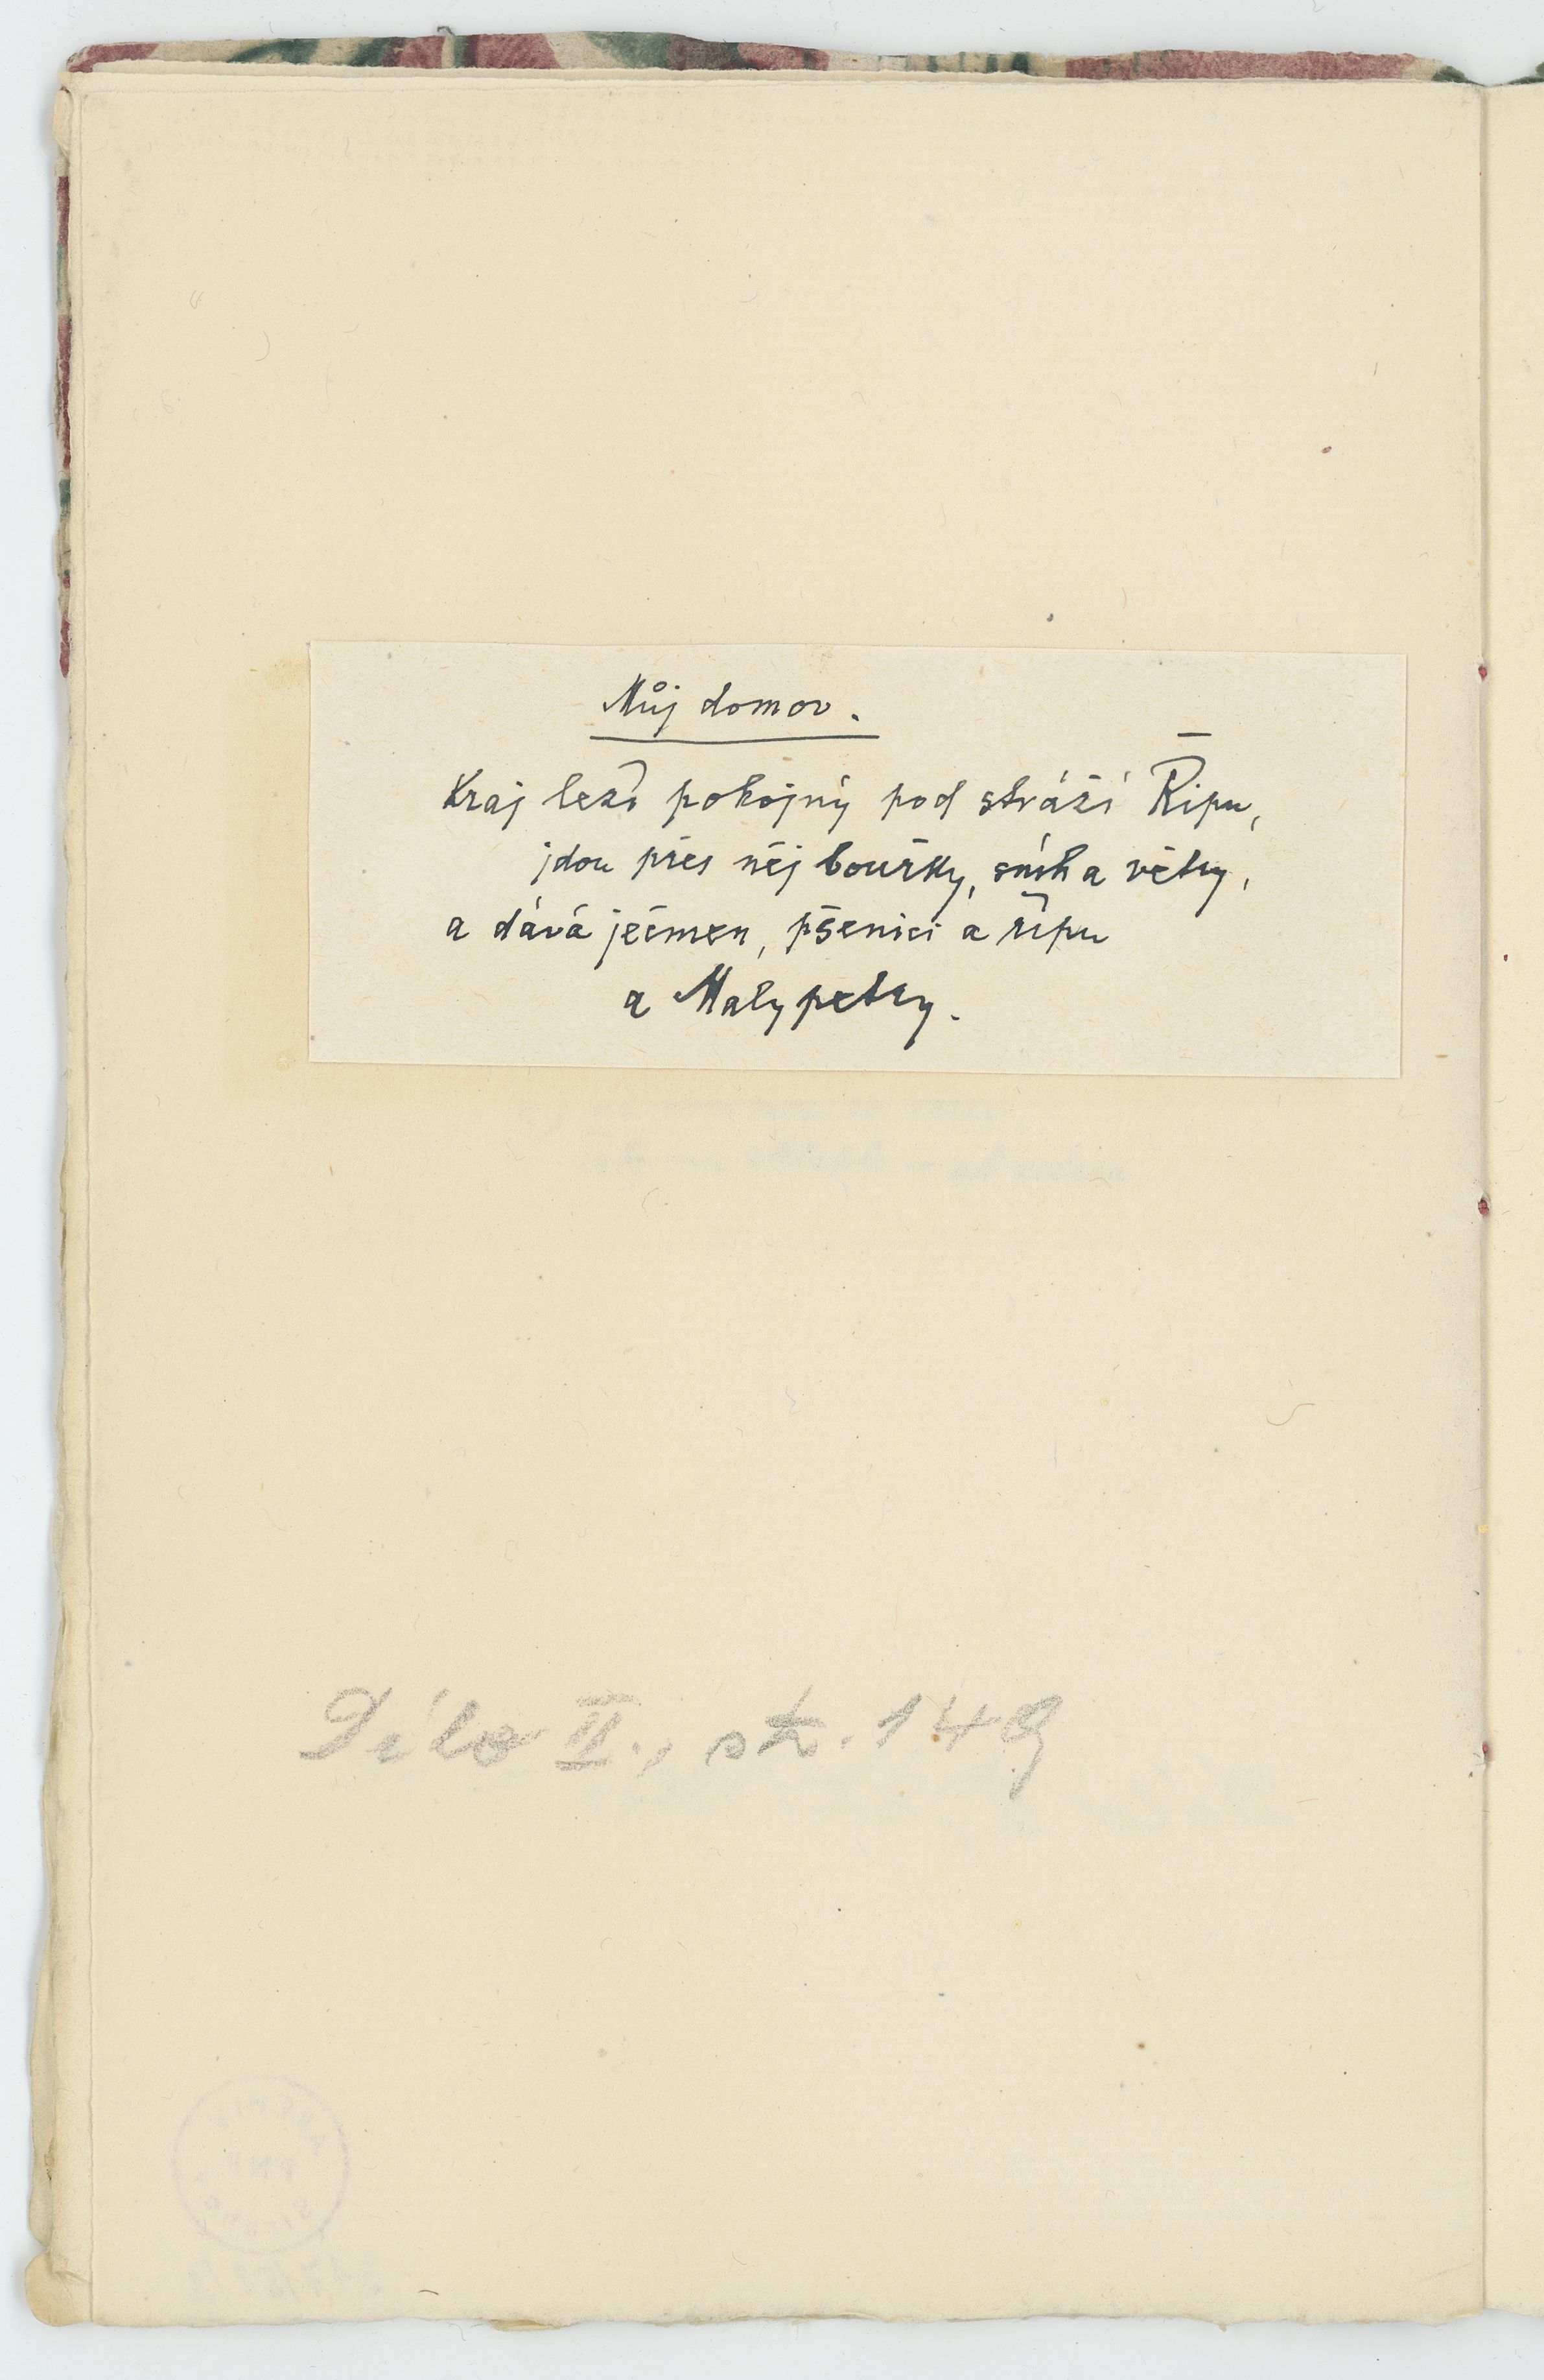 Můj domov.
Kraj leží pokojný pod stráží Řípu,
jdou přes něj bouřky, sníh a větry,
a dává ječmen, pšenici a řípu
a Malypetry.
Dílo II., str. 149